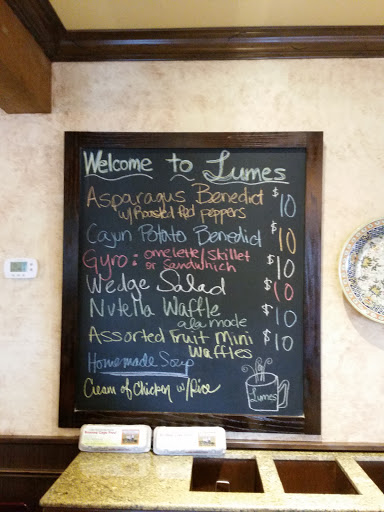 Welcome to Lumes
Asparagus Benedict $10
w/ Roasted Red peppers
Cajun Potato Benedict $10
Gyro: omelette/skillet $10
or sandwhich
Wedge Salad $10
Nutella Waffle $10
ala mode
Assorted fruit Mini $10
Waffles
Homemade Soup
Cream of Chicken w/Rice
Lumes